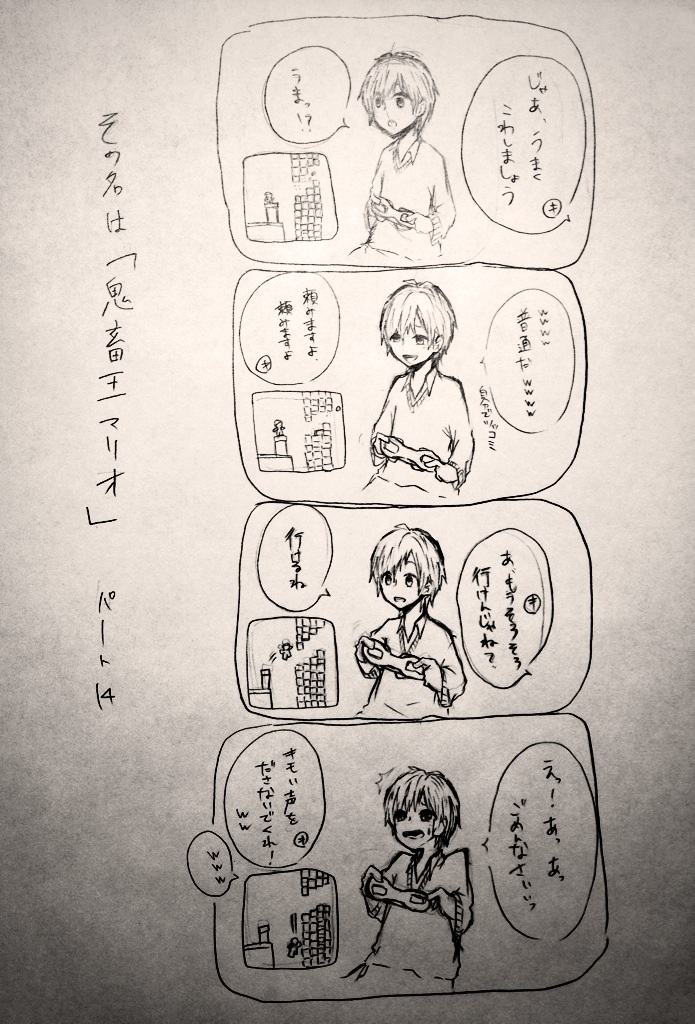 じゃあ、うまく
こわしましょう
キ
うまっ!?
wwww
普通だwwww
自分でツッコミ
頼みますよ
頼みますよ
キ
あ、もうそろそろ
行けんじゃねて、
キ
行けるね
えっ!あっあっ
ごめんなさいぃっ
キモい声を
ださないでくれ!
ww
キ
www
その名は「鬼畜王マリオ」 パート14